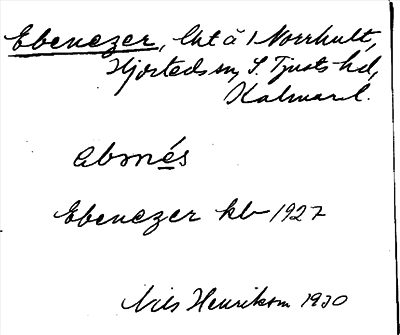 Ebenezer, lht å 1 Norrhult,
Hjorteds sn, S. Tjusts hd,
Kalmar l.
abmés
Ebenezer kb 1927
Nils Henrikson 1930